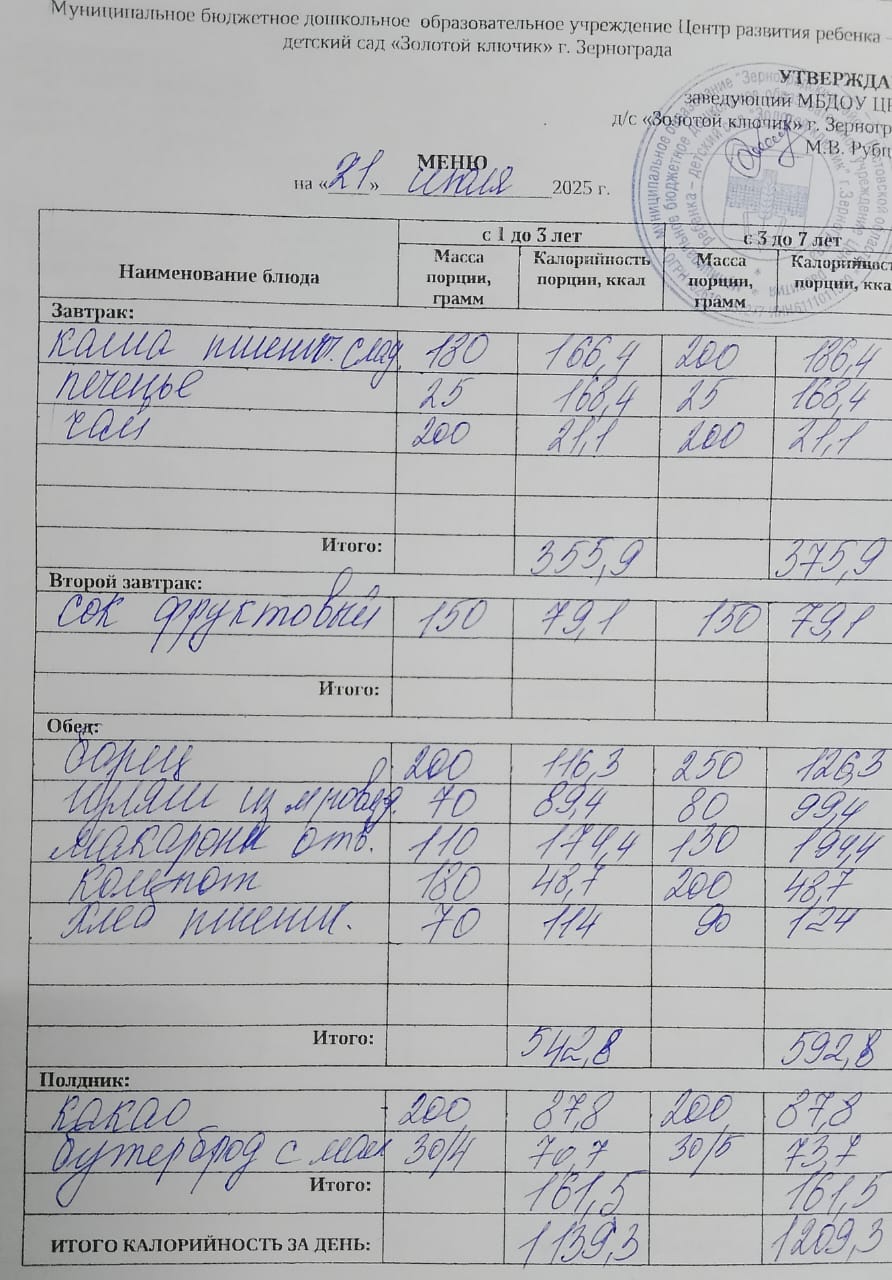 Муниципальное бюджетное дошкольное образовательное учреждение Центр развития ребенка –
детский сад «Золотой ключик» г. Зернограда
УТВЕРЖДА
заведующий МБДОУ ЦР
д/с «Золотой ключик» г. Зерногр
М.В. Рубц
МЕНЮ
на «21» июля 2025 г.
Наименование блюда с 1 до 3 лет с 3 до 7 лет
Масса порции, грамм Калорийность порции, ккал Масса порции, грамм Калорийност порции, кка
Завтрак:
каша пшенич. слад. 180 166,4 200 186,4
печенье 25 168,4 25 168,4
чай 200 21,1 200 21,1
Итого: 355,9 375,9
Второй завтрак:
сок фруктовый 150 79,1 150 79,1
Итого:
Обед:
борщ 200 116,3 250 126,3
гуляш из 70 89,4 80 99,4
макароны отв. 110 174,4 130 194,4
компот 180 48,7 200 48,7
хлеб пшенич. 70 114 90 124
Итого: 542,8 592,8
Полдник:
какао 200 87,8 200 87,8
бутерброд с мас 30/4 30/5 73,7
Итого: 161,5 161,5
ИТОГО КАЛОРИЙНОСТЬ ЗА ДЕНЬ: 1139,3 1209,3